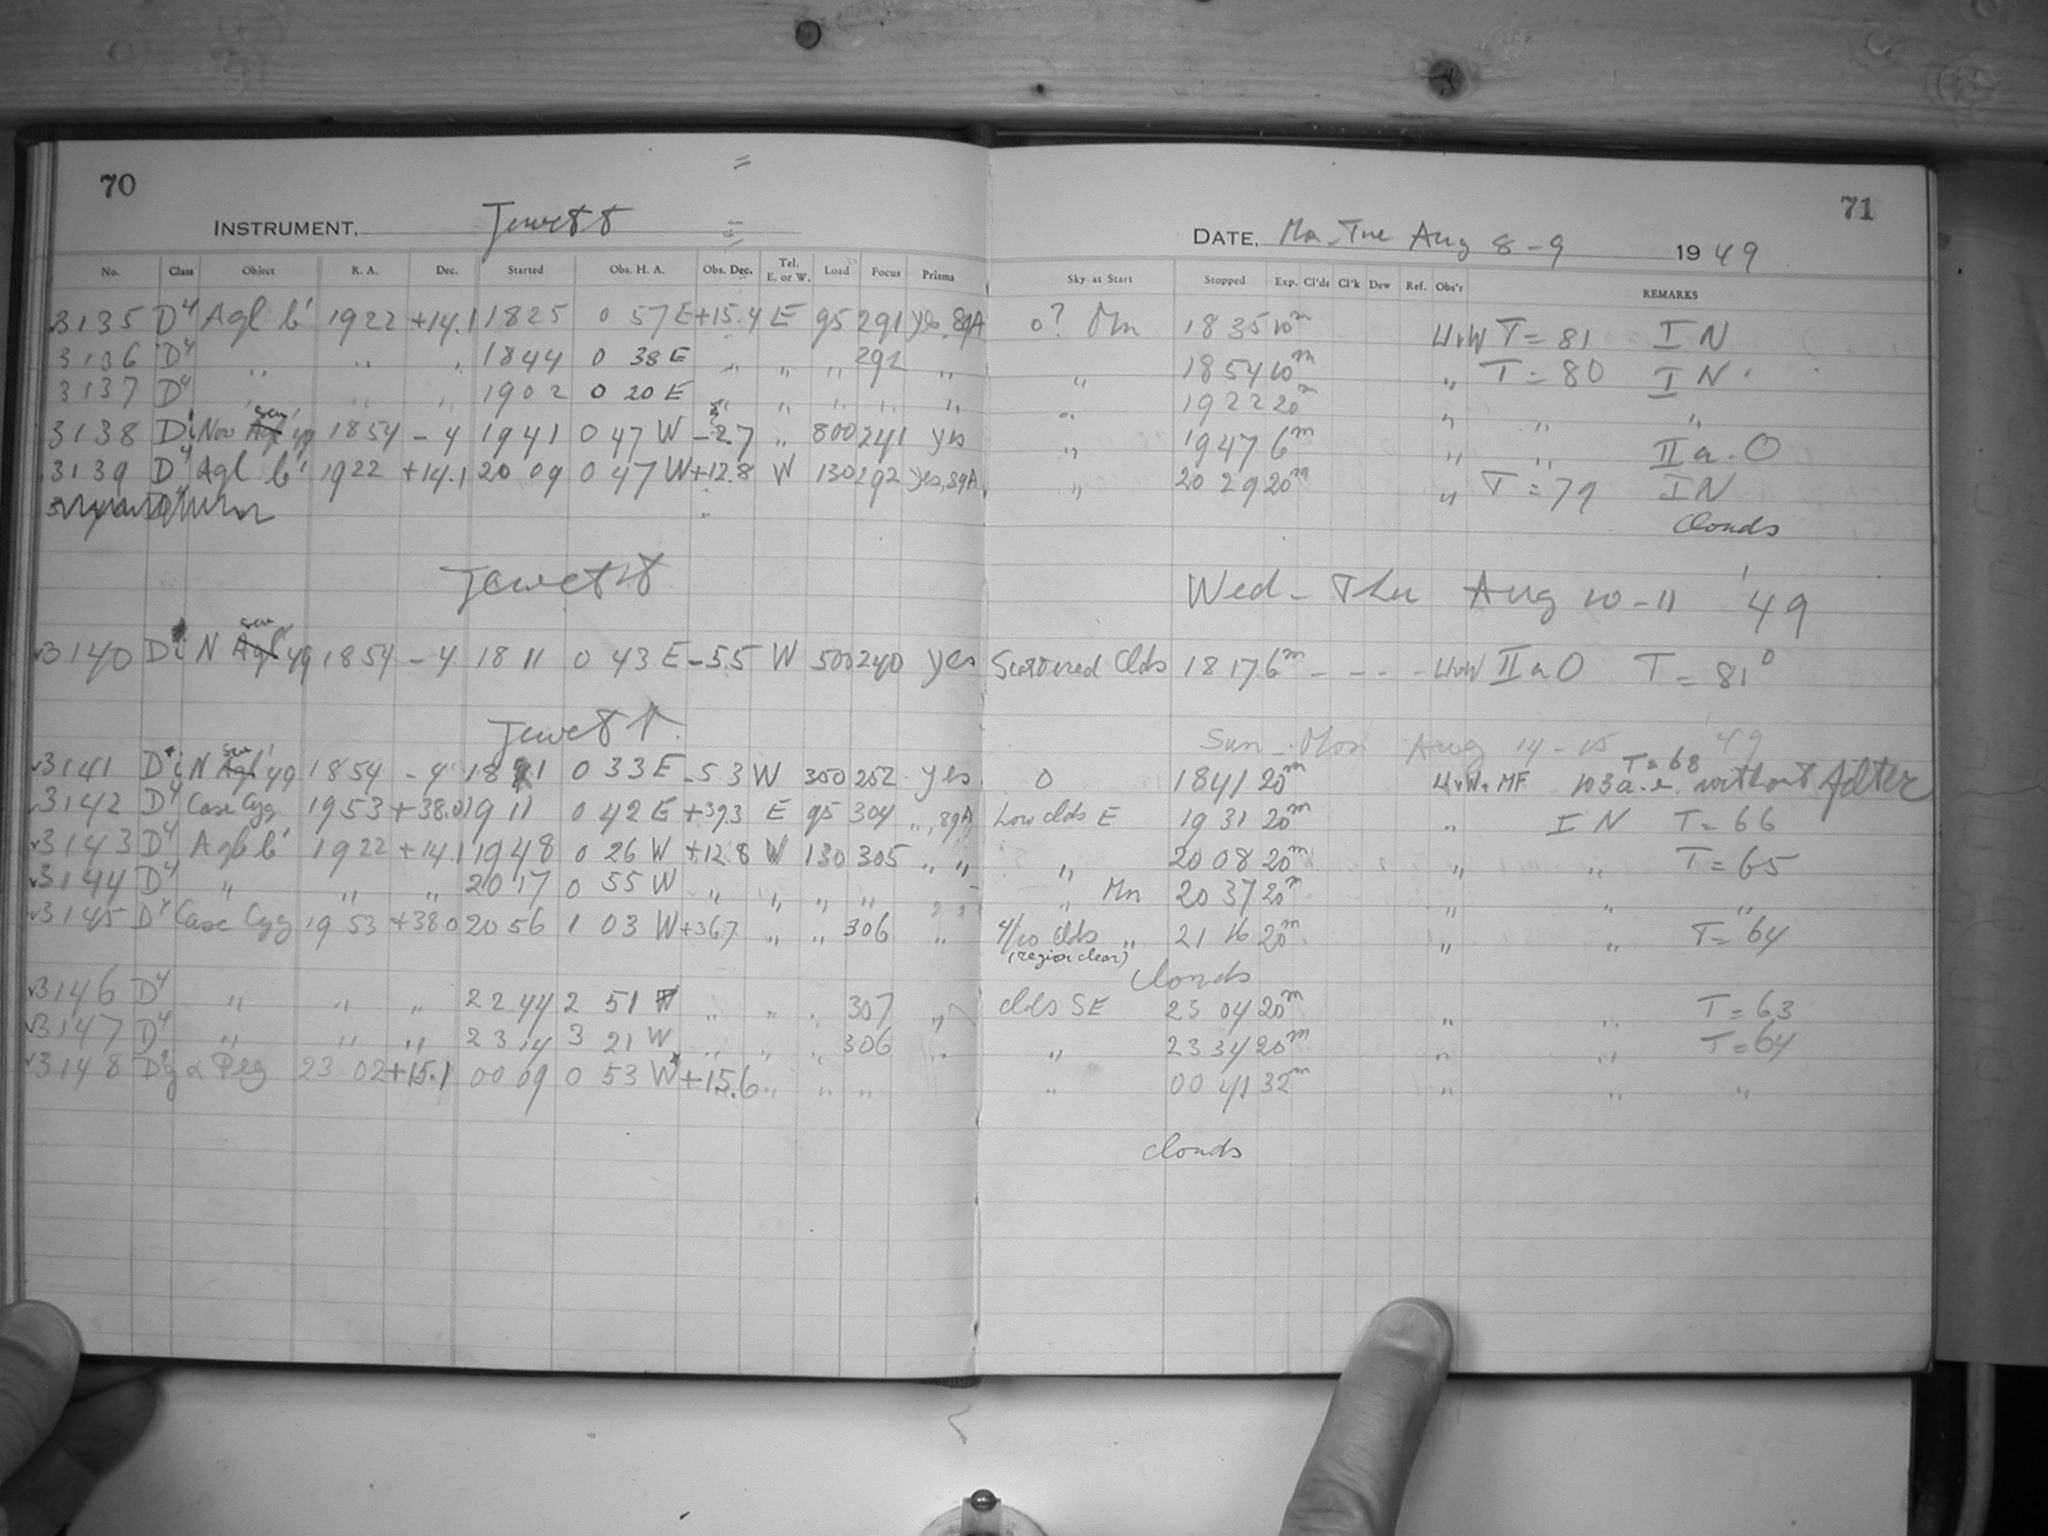 70
INSTRUMENT, Jewett
No. Class Object R. A. Dec. Started Obs. H. A. Obs. Dec. Tel. E. or W. Load Focus Prisms
3135 D4 Aql b' 1922 +14.1 1825 0 57 E +15.4 E 95 291 yes, 89A
3136 D4 " " " 1844 0 38 E " " " 292 "
3137 D4 " " " 1902 0 20 E " " " " "
3138 Di Nov Scu '49 1854 -4 1941 0 47 W -2.7 " 800 241 yes
3139 D4 Aql b' 1922 +14.1 20 09 0 47 W +12.8 W 130 292 yes, 89A
Jewett
3140 Di N Scu '49 1854 -4 18 11 0 43 E -5.5 W 500 240 yes
Jewett
3141 Di N Scu '49 1854 -4 1821 0 33 E -5.3 W 350 252 yes
3142 D4 Case Cyg 1953 +38.0 19 11 0 42 E +39.3 E 95 304 ", 89A
3143 D4 Aql b' 1922 +14.1 1948 0 26 W +12.8 W 130 305 " "
3144 D4 " " " 20 17 0 55 W " " " " " "
3145 D4 Case Cyg 19 53 +38.0 20 56 1 03 W +36.7 " " 306 "
3146 D4 " " " 22 44 2 51 W " " " 307 "
3147 D4 " " " 23 14 3 21 W " " " 306 "
3148 α Peg 23 02 +15.1 00 09 0 53 W +15.6 " " "
71
DATE, Mn-Tue Aug 8-9 1949
Sky at Start Stopped Exp. Cl'ds Cl'k Dew Ref. Obs'r REMARKS
0? Mn 18 35 10m UvW T = 81 I N
" 18 54 10m " T = 80 I N
" 19 22 20m " " "
" 19 47 6m " " II a-O
" 20 29 20m " T = 79 I N
Clouds
Wed - Thu Aug 10-11 '49
Scattered Clds 18 17 6m - - - - UvW II a O T = 81°
Sun - Mon Aug 14-15 '49
T = 68
0 1841 20m UvW. MF 103a-e without filter
Low clds E 19 31 20m " I N T = 66
" 20 08 20m " " T = 65
" Mn 20 37 20m " " "
4/10 clds " 21 16 20m " " T = 64
(region clear)
Clouds
clds SE 23 04 20m " " T = 63
" 23 34 20m " " T = 64
" 00 41 32m " " "
clouds